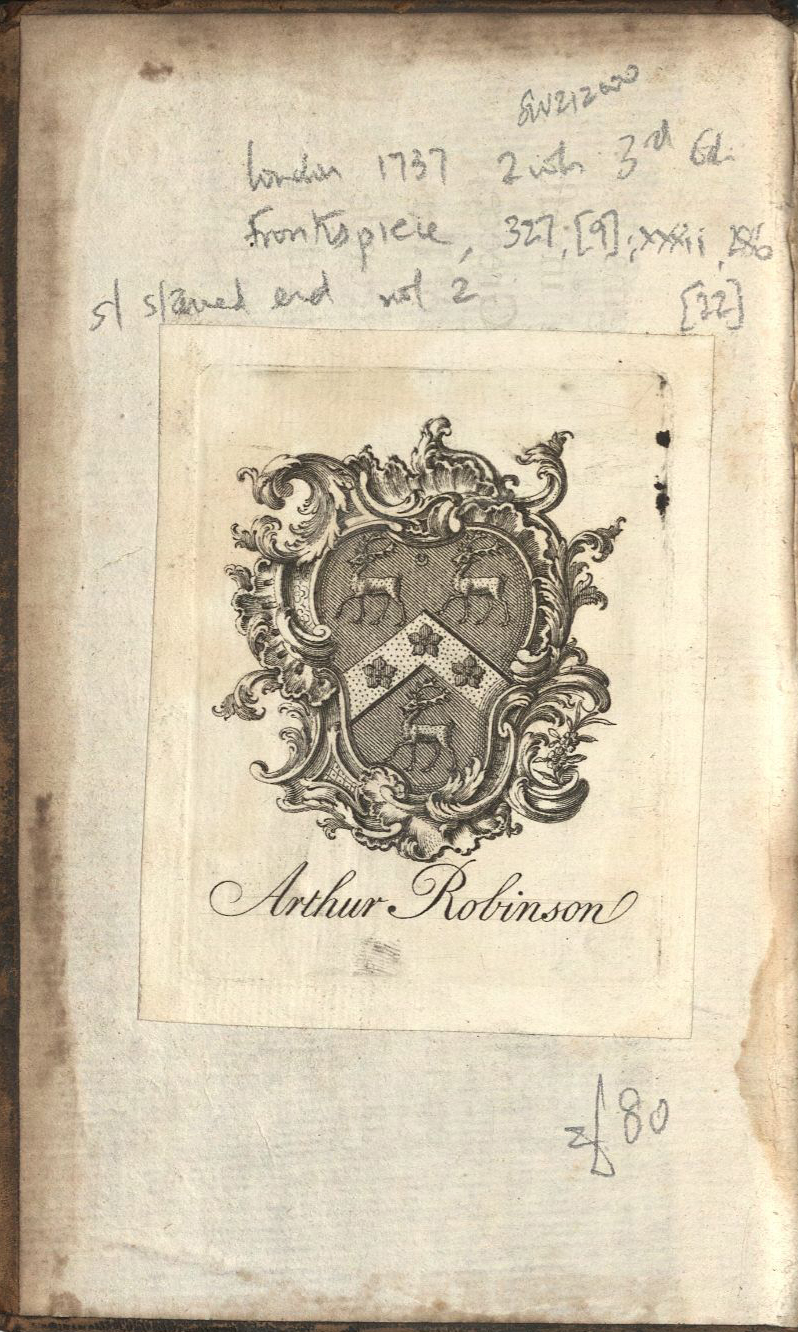 London 1737 2 vols 3rd Ed.
Frontispiece, 327, [9]; xxxii,
sl stained end vol 2 [22]
Arthur Robinson
£80